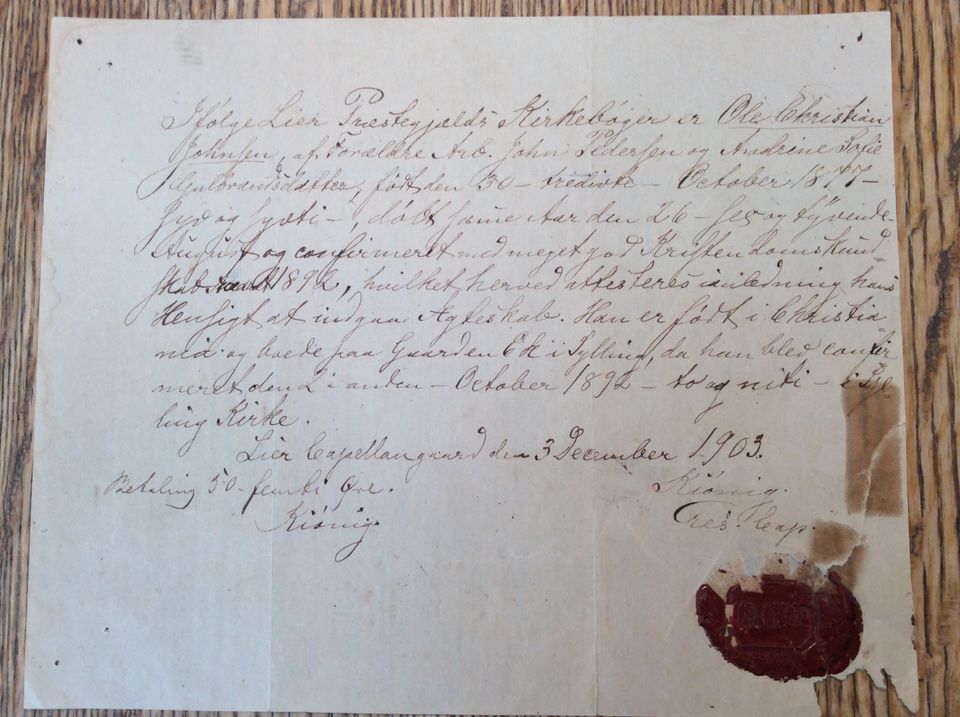 Ifølge Lier Præstegjælds Kirkebøger er Ole Christian
Johnsen, af Forældre Arb. John Pedersen og Andrine Sofie
Gulbrandsdatter, født den 30 - tredivte - October 1877 -
syv og sytti -, døbt same Aar den 26 - sex og tyvende
August og confirmeret med meget god Kristendomskund-
skab 1892, hvilket herved attesteres i anledning hans
Hensigt at indgaa Ægteskab. Han er født i Christia
nia og boede paa Gaarden Ek i Sylling, da han blev confir
meret den 2 - anden - October 1892 - to og niti - i Syl
ling Kirke.
Lier Capellangaard den 3 December 1903.
Betaling 50 - femti Øre.
Kiønig.
Kiønig.
res. Cap.